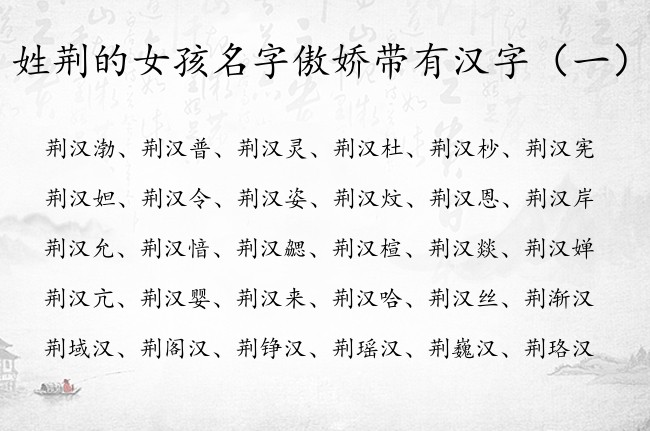 姓荆的女孩名字傲娇带有汉字（一）
荆汉渤、荆汉普、荆汉灵、荆汉杜、荆汉杪、荆汉宪
荆汉妲、荆汉令、荆汉姿、荆汉炆、荆汉恩、荆汉岸
荆汉允、荆汉愔、荆汉勰、荆汉楦、荆汉燚、荆汉婵
荆汉亢、荆汉婴、荆汉来、荆汉哈、荆汉丝、荆渐汉
荆域汉、荆阁汉、荆铮汉、荆瑶汉、荆巍汉、荆珞汉